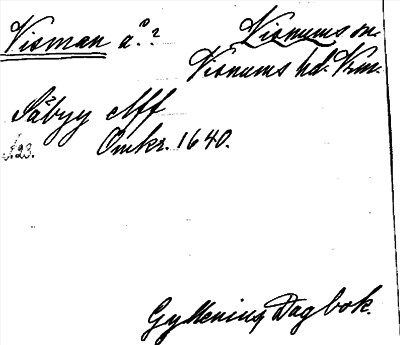 Visman å.? Visnums sn.
Visnums hd. Vrm.
Säbyy Mff
S. 23. Omkr. 1640.
Gyllenius Dagbok.